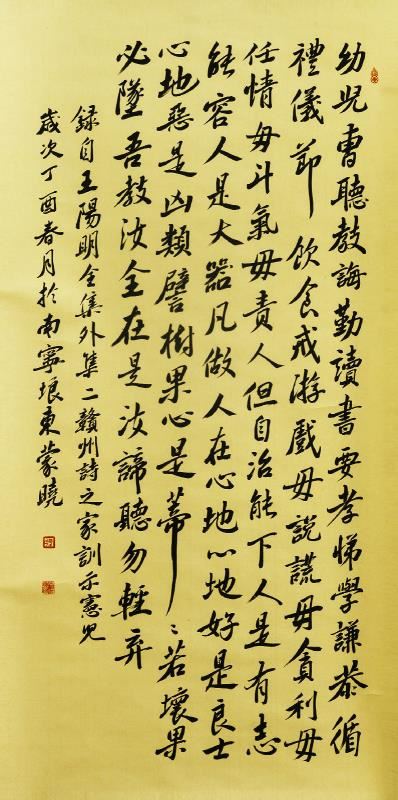 幼兒曹聽教誨勤讀書要孝悌學謙恭循
禮儀節飲食戒游戲毋說謊毋貪利毋
任情毋斗氣毋責人但自治能下人是有志
能容人是大器凡做人在心地心地好是良士
心地惡是凶類譬樹果心是蒂〻若壞果
必墜吾教汝全在是汝諦聽勿輕弃
録自王陽明全集外集二贛州詩之家訓示憲兒
歲次丁酉春月於南寧埌東蒙曉